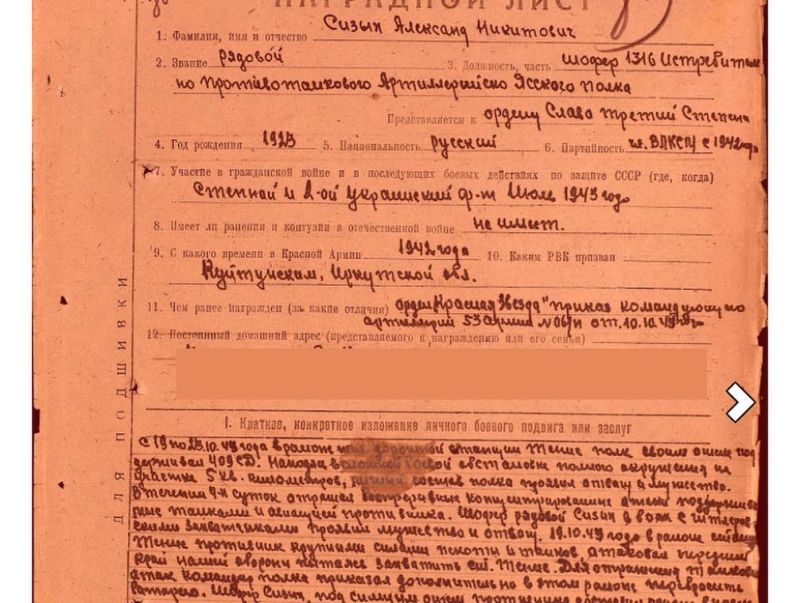 НАГРАДНОЙ ЛИСТ
1. Фамилия, имя и отчество Сизын Александ Никитович
2. Звание рядовой 3. Должность, часть шофер 1316 Истребител
но Противотанкового Артиллерийско Ясского полка
Представляется к ордену Слава третий Степени
4. Год рождения 1923 5. Национальность русский 6. Партийность чл. ВЛКСМ с 1942 года
7. Участие в гражданской войне и в последующих боевых действиях по защите СССР (где, когда)
Степной и 2-ой Украинский фр-т Июль 1943 года
8. Имеет ли ранения и контузии в отечественной войне не имеет.
9. С какого времени в Красной Армии 1942 года 10. Каким РВК призван
Куйтунским, Иркутской обл.
11. Чем ранее награжден (за какие отличия) орден Красная Звезда" приказ командующего
артиллерией 53 Армии от 10.10
12. Постоянный домашний адрес (представляемого к награждению или его семьи)
ДЛЯ ПОДШИВКИ
I. Краткое, конкретное изложение личного боевого подвига или заслуг
С 19 по года в районе станции полк своим огнем под
держивал 409 СД. Находясь в обстановке полного окружения на
участке 5 кв. километров, личный состав полка проявил отвагу и мужество.
В течении 4х суток отражал контратаки
танками и авиацией противника. Шофер рядовой Сизин в боях с гитлеров
скими захватчиками проявил мужество и отвагу. 19.10 года в районе
противник крупными силами пехоты и танков атаковал передний
край нашей обороны пытаясь захватить ст. Для отражения танковых
атак командир полка приказал дополнительно в этом районе перебросить
батарею. Шофер Сизин, под сильным огнем противника